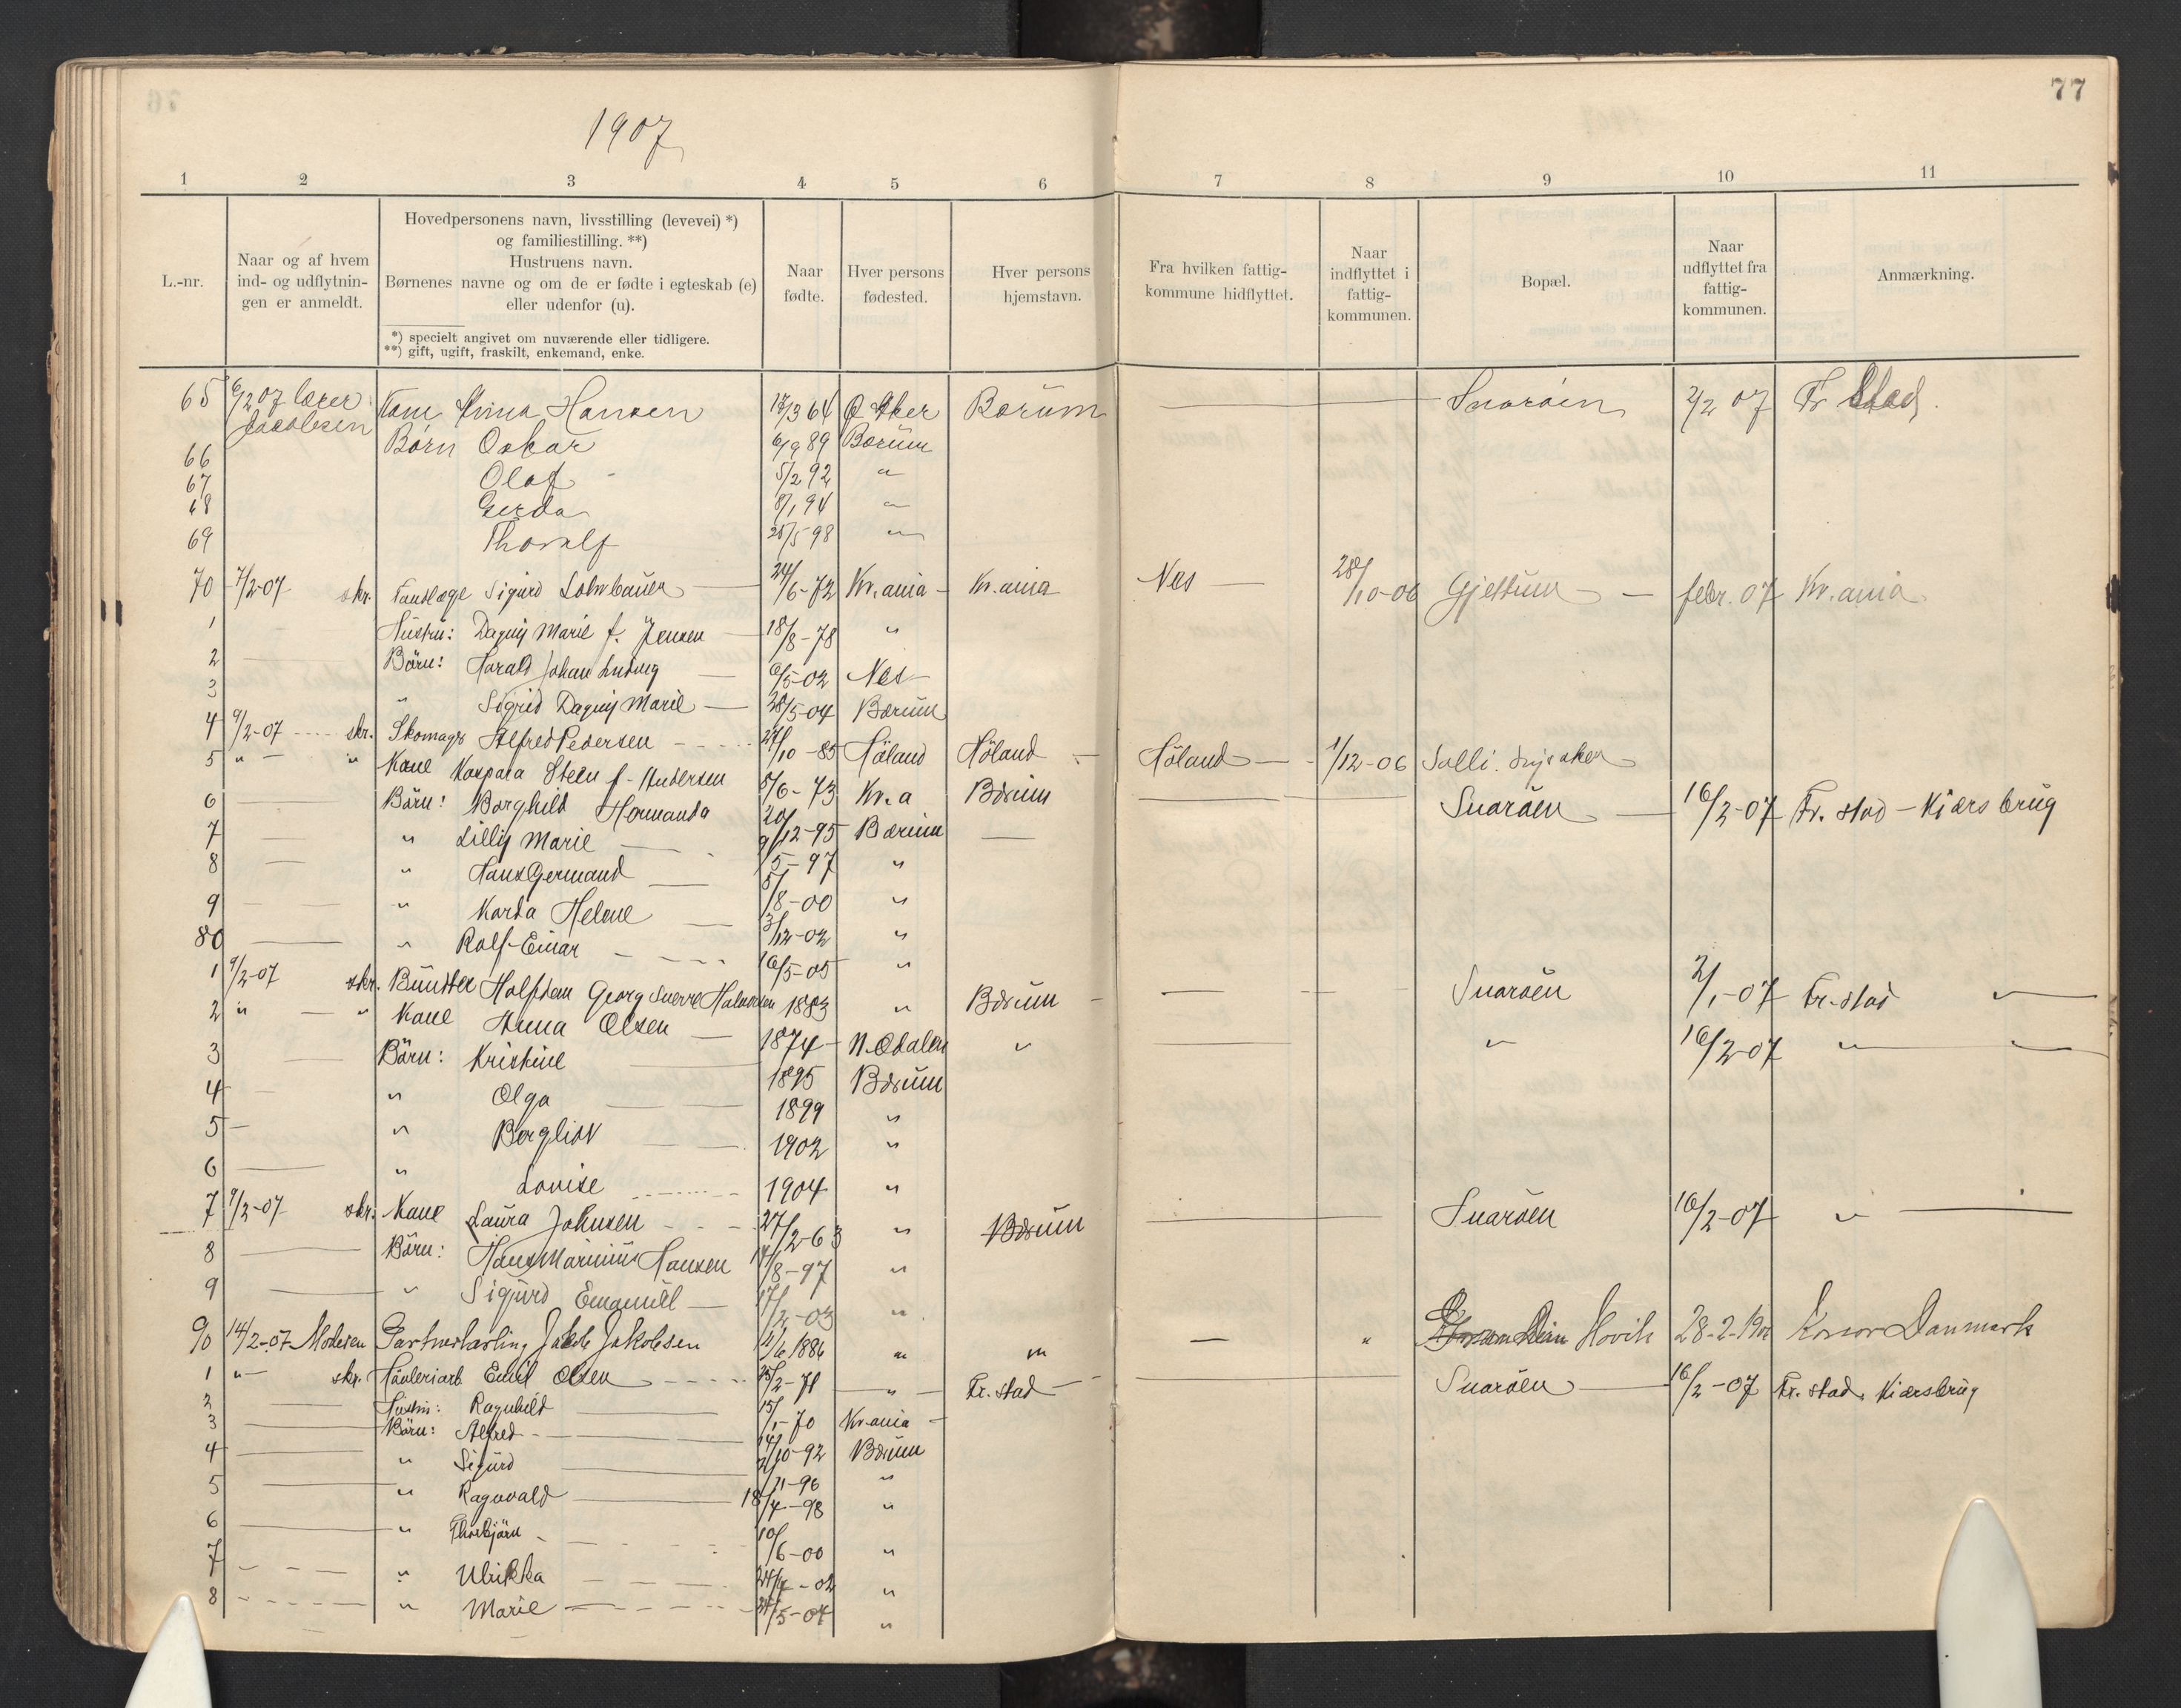 76
77
1907
1 2 3 4 5 6 7 8 9 10 11
L.-nr.
Naar og af hvem
ind- og udflytnin-
gen er anmeldt.
Hovedpersonens navn, livsstilling (levevei) *)
og familiestilling. **)
Hustruens navn.
Børnenes navne og om de er fødte i egteskab (e)
eller udenfor (u).
*) specielt angivet om nuværende eller tidligere.
**) gift, ugift, fraskilt, enkemand, enke.
Naar
fødte.
Hver persons
fødested.
Hver persons
hjemstavn.
Fra hvilken fattig-
kommune hidflyttet.
Naar
indflyttet i
fattig-
kommunen.
Bopæl.
Naar
udflyttet fra
fattig-
kommunen.
Anmærkning.
65 6/2 07 Lærer Jacobsen Anna Hansen 17/3 64 Ø Aker Bærum — Snarøen 2/2 07 Fr Stad.
66 Børn Oskar 6/9 89 Bærum
67 Olaf 5/2 92 "
68 Gerda 8/1 94 "
69 Thoralf 25/5 98 "
70 7/2-07 skr. Tandlæge Sigurd — 24/6-72 Kr.ania - Kr.ania Nes — 28/10-06 Gjettum — febr. 07 Kr.ania
1 Hustru: Dagny Marie f. Jensen — 18/8-78 "
2 — Børn: Harald Johan Ludvig — 6/5-02 Nes
3 " Sigrid Dagny Marie — 28/5-04 Bærum
4 9/2-07 skr. Skomager Alfred Pedersen 27/10-85 Höland Höland - Höland — 1/12-06 Solli. Lysaker
5 " — " Kone Kaspara Steen f. Andersen 5/6-73 Kr.a Bærum — Snarøen — 16/2-07 Fr. stad - Kiærs brug
6 — Børn: Borghild Hermanda 20/12-95 Bærum —
7 — " Lilly Marie — 9/5-97 "
8 — " Hans Germand — 5/8-00 "
9 — " Karda Helene — 3/12-02 "
80 — " Rolf-Einar 16/5-05 "
1 9/2-07 skr. Halfdan Georg Sverre Halvorsen 1883 " Bærum - — Snarøen 2/1-07 Fr.stad "
2 " — " Kone Anna Olsen — 1874 - N. Odalen " — " 16/2-07 " "
3 — Børn: Kristine — 1895 Bærum
4 — " Olga — 1899 "
5 — " Bergliot — 1902 "
6 — " Lovise 1904 "
7 9/2-07 skr. Kone Laura Johnsen 27/2-63 " Bærum — Snarøen 16/2-07 " —
8 — Børn: Hans Marinius Hansen 17/8-97 "
9 — " Sigurd Emanuel — 17/2-03 "
90 14/2-07 Gartnerlærling Jakob Jakobsen 11/6 1886 " " — " Hovik 28-2-190 Korsor Danmark
1 " — skr. Høvleriarb. Emil Olsen 25/2-71 " Fr. stad — Snarøen — 16/2-07 Fr. stad, Kiærsbrug
2 — Hustru: Ragnhild — 15/1-70 Kr.ania -
3 — Børn: Alfred 14/10-92 Bærum
4 — " Sigurd — 2/11-96 "
5 — " Ragnvald — 18/4-98 "
6 — " Thorbjørn 10/6-00 "
7 " Ulrikka 24/7-02 "
8 " Marie 24/5-04 "